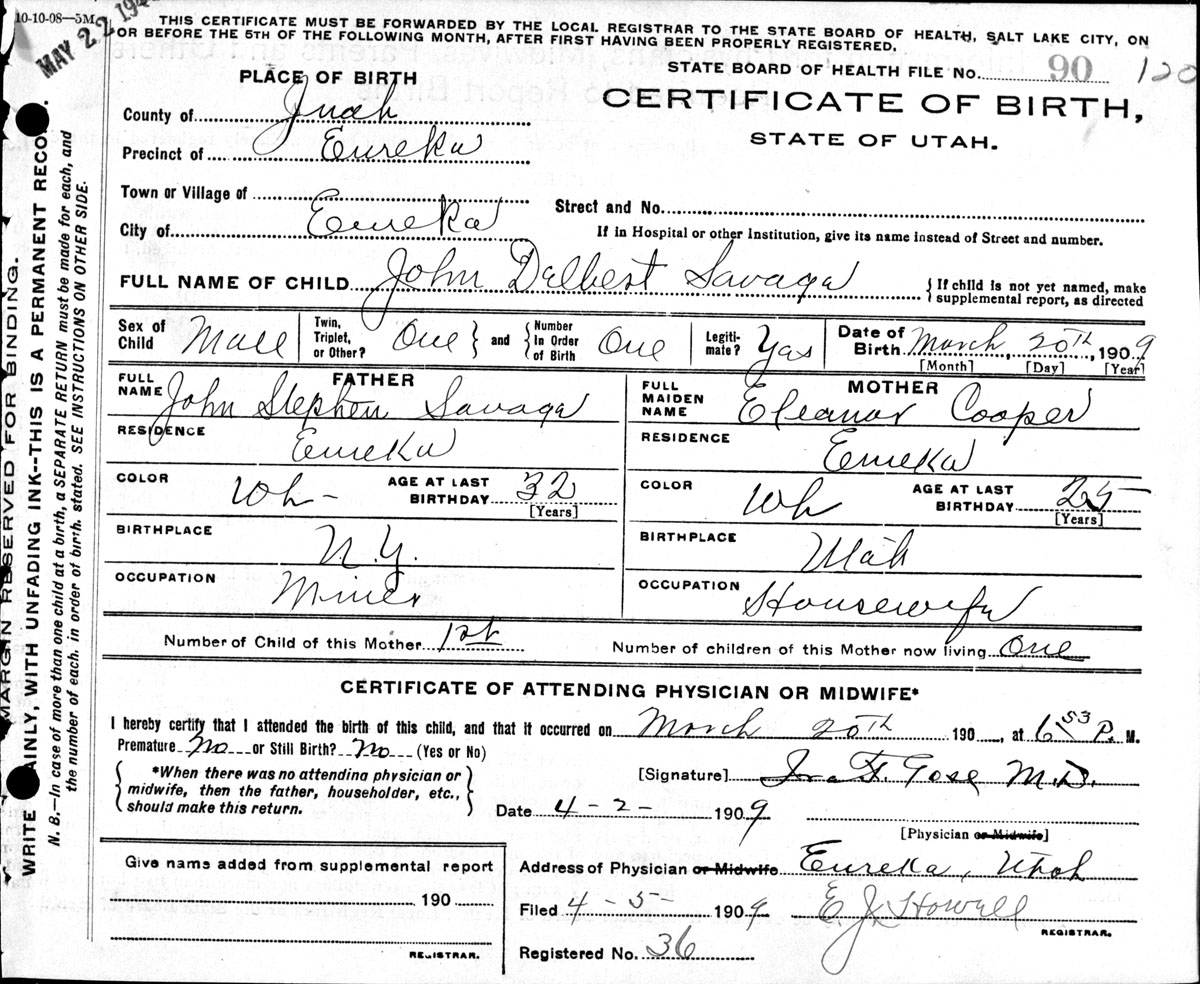 10-10-08—5M
MAY 22 194
THIS CERTIFICATE MUST BE FORWARDED BY THE LOCAL REGISTRAR TO THE STATE BOARD OF HEALTH, SALT LAKE CITY, ON
OR BEFORE THE 5TH OF THE FOLLOWING MONTH, AFTER FIRST HAVING BEEN PROPERLY REGISTERED.
PLACE OF BIRTH
STATE BOARD OF HEALTH FILE NO. 90 120
CERTIFICATE OF BIRTH,
STATE OF UTAH.
County of Juab
Precinct of Eureka
Town or Village of
Street and No.
City of Eureka
If in Hospital or other Institution, give its name instead of Street and number.
FULL NAME OF CHILD John Delbert Savage
{ If child is not yet named, make
supplemental report, as directed
Sex of Child Male
Twin, Triplet, or Other? One } and { Number In Order of Birth One
Legiti-mate? Yes
Date of Birth March, 20th, 1909
[Month] [Day] [Year]
FATHER
FULL NAME John Stephen Savage
RESIDENCE Eureka
COLOR Wh- AGE AT LAST BIRTHDAY 32
[Years]
BIRTHPLACE N.Y.
OCCUPATION Miner
MOTHER
FULL MAIDEN NAME Eleanor Cooper
RESIDENCE Eureka
COLOR Wh AGE AT LAST BIRTHDAY 25
[Years]
BIRTHPLACE Utah
OCCUPATION Housewife
Number of Child of this Mother 1st Number of children of this Mother now living One
CERTIFICATE OF ATTENDING PHYSICIAN OR MIDWIFE*
I hereby certify that I attended the birth of this child, and that it occurred on March 20th 190 , at 6 53 P. M.
Premature No or Still Birth? No (Yes or No)
{ *When there was no attending physician or
midwife, then the father, householder, etc.,
should make this return. }
[Signature] Ira F. Gose M.D.
Date 4-2- 1909
[Physician or Midwife]
Give name added from supplemental report
190
REGISTRAR.
Address of Physician or Midwife Eureka, Utah
Filed 4-5- 1909 E J Howell
REGISTRAR.
Registered No. 36
MARGIN RESERVED FOR BINDING.
WRITE AINLY, WITH UNFADING INK--THIS IS A PERMANENT RECO .
N. B.—In case of more than one child at a birth, a SEPARATE RETURN must be made for each, and
the number of each, in order of birth, stated. SEE INSTRUCTIONS ON OTHER SIDE.